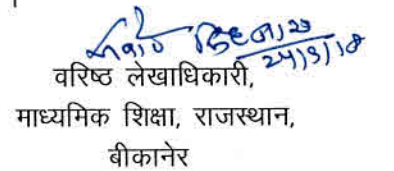 24/9/18
वरिष्ठ लेखाधिकारी,
माध्यमिक शिक्षा, राजस्थान,
बीकानेर